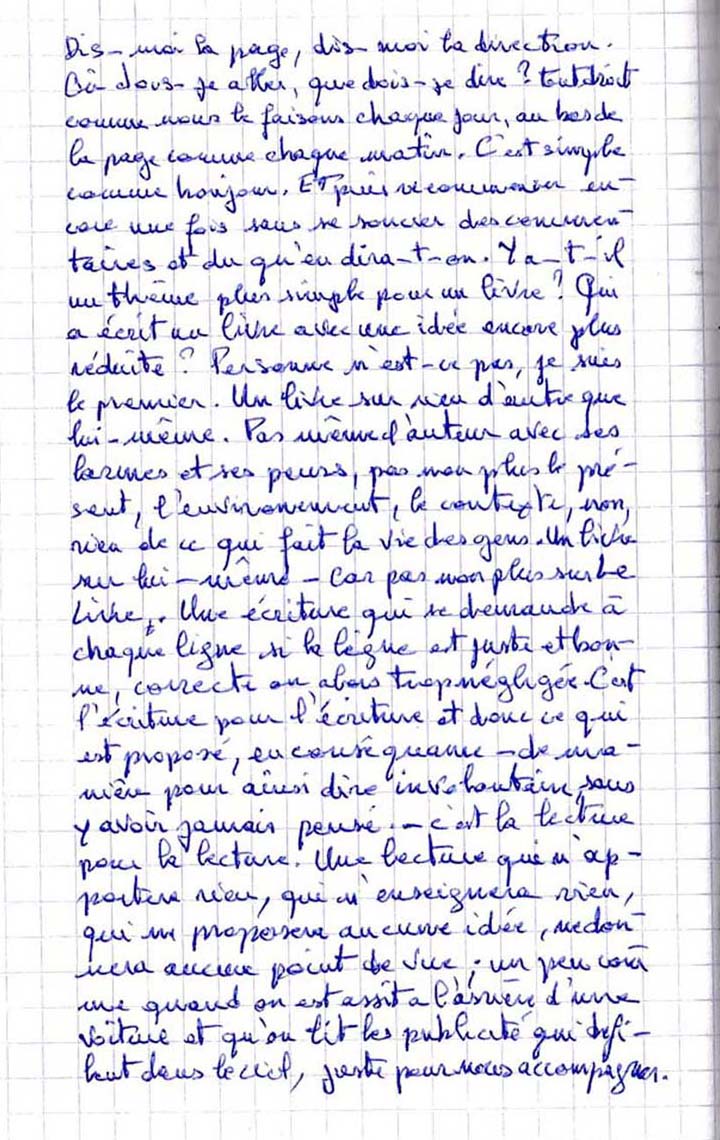 Dis-moi la page, dis-moi la direction.
Où dois-je aller, que dois-je dire ? tout droit
comme nous le faisons chaque jour, au bas de
la page comme chaque matin. C'est simple
comme bonjour. ET puis recommencer en-
core une fois sans se soucier des commen-
taires et du qu'en dira-t-on. Y a-t-il
un thème plus simple pour un livre ? Qui
a écrit un livre avec une idée encore plus
réduite ? Personne n'est-ce pas, je suis
le premier. Un livre sur rien d'autre que
lui-même. Pas même l'auteur avec ses
larmes et ses peurs, pas non plus le pré-
sent, l'environnement, le contexte, non,
rien de ce qui fait la vie des gens. Un livre
sur lui-même - Car pas non plus sur Le
Livre. Une écriture qui se demande à
chaque ligne si la ligne est juste et bon-
ne, correcte ou alors trop négligée. C'est
l'écriture pour l'écriture et donc ce qui
est proposé, en conséquance - de ma-
nière pour ainsi dire involontaire, sans
y avoir jamais pensé. - c'est la lecture
pour la lecture. Une lecture qui n'ap-
portera rien, qui n'enseignera rien,
qui ne proposera aucune idée, ne don-
nera aucun point de vue ; un peu com
me quand on est assit a l'arrière d'une
voiture et qu'on lit les publicité qui défi-
lent dans le ciel, juste pour nous accompagner.